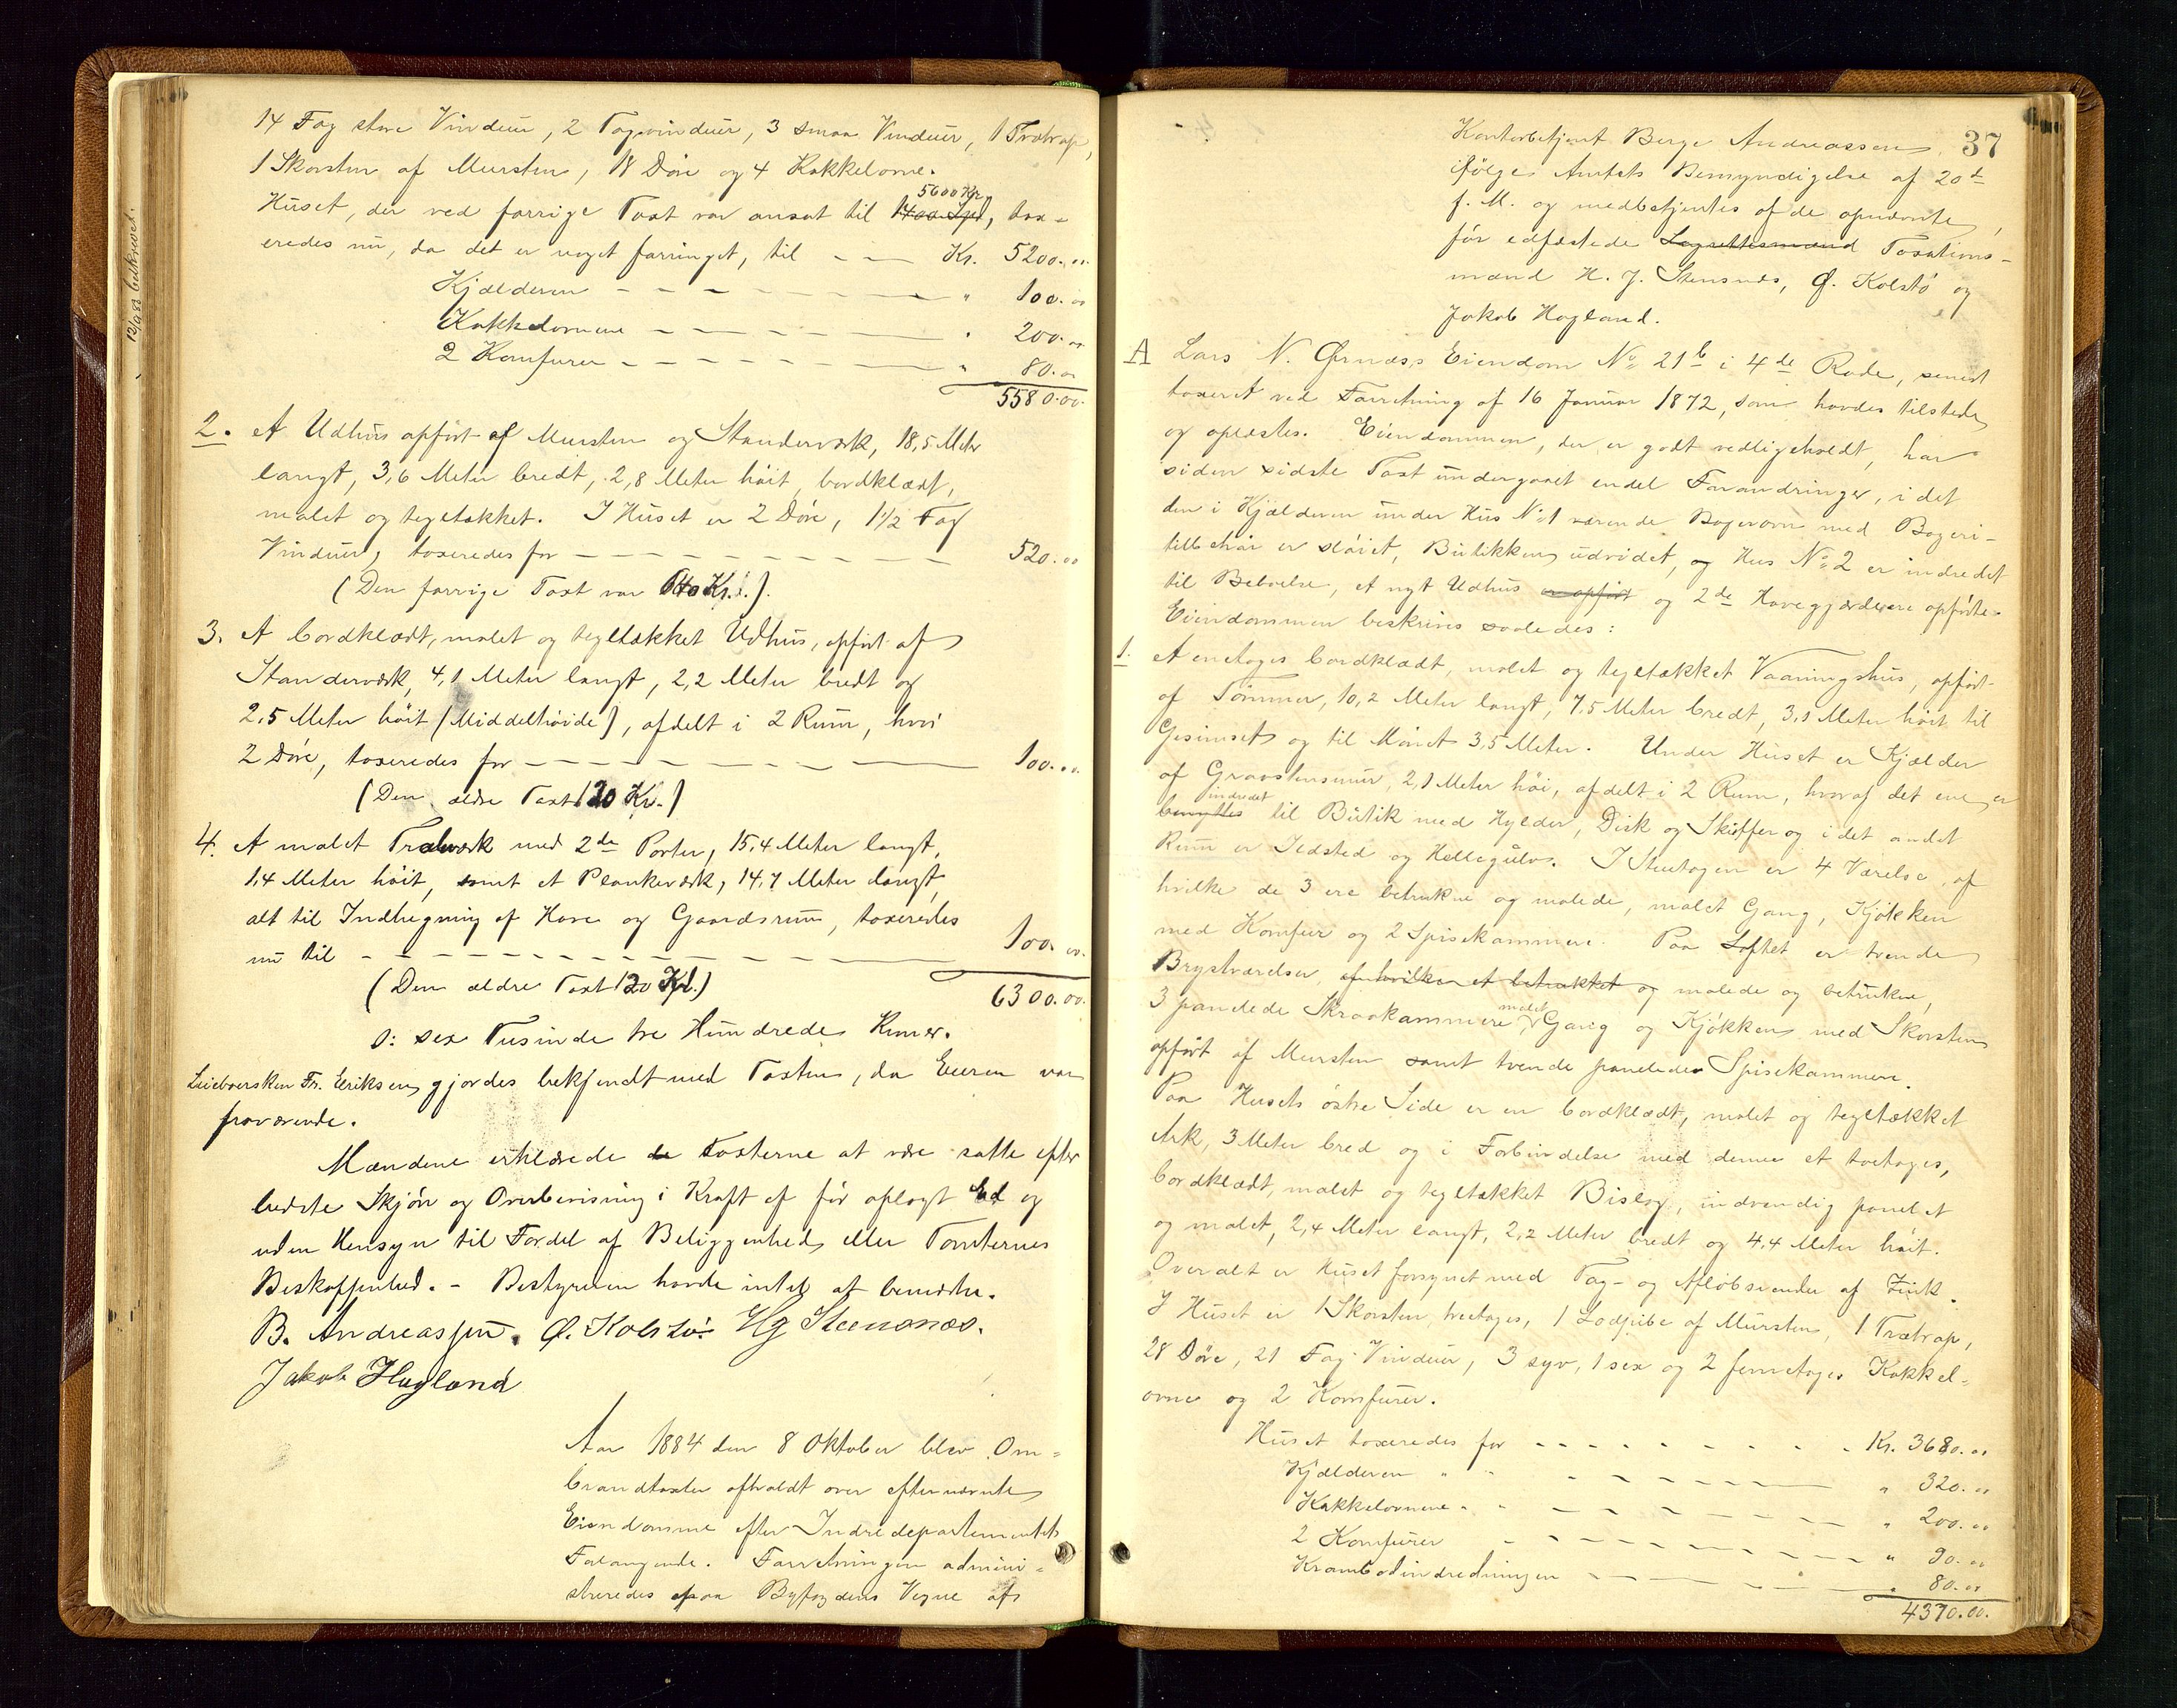 14 Fag store Vinduer, 2 Tagvinduer, 3 smaa Vinduer, 1 Trætrap,
1 Skorsten af Mursten, 18 Döre og 4 Kakkelovne.
5600 Kr.
Huset, der ved forrige Taxt var ansat til 1400 Spd, tax-
eredes nu, da det er noget forringet, til Kr. 5200.00
Kjælderen " 100.00
Kakkelovnene " 200.00
2 Komfurer " 80.00
5580.00.
2. Et Udhus opført af Mursten og Standerværk, 18,5 Meter
langt, 3,6 Meter bredt, 2,8 Meter höit, bordklædt,
malet og tegltækket. I Huset er 2 Döre, 1 1/2 Fag
Vinduer, taxeredes for 520.00
(Den forrige Taxt var Kr.).
3. Et bordklædt, malet og tegltækket Udhus, opfört af
Standerværk, 4,1 Meter langt, 2,2 Meter bredt og
2,5 Meter höit (Middelhöide), afdelt i 2 Rum, hvori
2 Döre, taxeredes for 100.00
(Den ældre Taxt 120 Kr.)
4. Et malet Træværk med 2de Porter, 15,4 Meter langt,
1,4 Meter höit, samt et Plankeværk, 14,7 Meter langt,
alt til Indhegning af Have og Gaardsrum, taxeredes
nu til 100.00.
(Den ældre Taxt 120 Kr.)
6300.00.
o: sex Tusinde tre Hundrede Kroner.
Leieboersken Fr. Eriksen gjordes bekjendt med Taxten, da Eieren var
fraværende.
Mændene erklærede de Taxterne at være satte efter
bedste Skjön og Overbevisning i Kraft af för aflagt Ed og
uden Hensyn til Fordel af Beliggenhed eller Tomternes
Beskaffenhed. - Bestyreren havde intet at bemærke.
B. Andreassen. Ø. Kolstö. Hg Steensnæs.
Jakob Hagland
Aar 1884 den 8 Oktober blev Om-
brandtaxter afholdt over efternævnte
Eiendomme efter Indredepartementets
Forlangende. Forretningen admini-
streredes paa Byfogdens Vegne af
37
Kontorbetjent Berge Andreassen
ifölge Amtets Bemyndigelse af 20de
f. M. og medbetjentes af de opnævnte,
för edfæstede Lagrettesmænd Taxations-
mænd H. J. Stensnæs, Ø. Kolstö og
Jakob Hagland.
A Lars N. Ørnæs's Eiendom No 21b i 4de Rode, senest
taxeret ved Forretning af 16 Januar 1872, som havdes tilstede
og oplæstes. Eiendommen, der er godt vedligeholdt, har
siden sidste Taxt undergaaet endel Forandringer, i det
den i Kjælderen under Hus No 1 værende Bagerovn med Bageri-
tilbehör er slöiet, Butikken udvidet, og Hus No 2 er indredet
til Beboelse, et nyt Udhus er opfört og 2de Havegjærderere opförte.
Eiendommen beskrives saaledes:
1. Et enetages bordklædt, malet og tegltækket Vaaningshus, opfört
af Tömmer, 10,2 Meter langt, 7,5 Meter bredt, 3,1 Meter höit til
Gesimset og til Mönet 3,5 Meter. Under Huset er Kjælder
af Graastensmur, 2,1 Meter höi, afdelt i 2 Rum, hvoraf det ene er
indredet
benyttes til Butik med Hylder, Disk og Skuffer og i det andet
Rum er Ildsted og Hellegulv. I Stuetagen er 4 Værelser, af
hvilke de 3 ere betrukne og malede, malet Gang, Kjökken
med Komfur og 2 Spisekammere. Paa Loftet er tvende
Brystværelser, af hvilken et betrukket og malede og betrukne,
3 panelede Skraakammere malet Gang og Kjökken med Skorsten
opfört af Mursten samt tvende panelede Spisekammere.
Paa Husets östre Side er en bordklædt, malet og tegltækket
Ark, 3 Meter bred og i Forbindelse med denne et toetages,
bordklædt, malet og tegltækket Bislag, indvendig panelet
og malet, 2,4 Meter langt, 2,2 Meter bredt og 4,4 Meter höit.
Overalt er Huset forsynet med Tag- og Aflöbsrender af Zink.
I Huset er 1 Skorsten, treetages, 1 Lodpibe af Mursten, 1 Trætrap,
28 Döre, 21 Fag Vinduer, 3 syv, 1 sex og 2 femetages Kakkel-
ovne og 2 Komfurer.
Huset taxeredes for Kr. 3680.00
Kjælderen " " " 320.00
Kakkelovnene " " " 200.00
2 Komfurer " 90.00
Krambodindredningen " 80.00
4370.00.